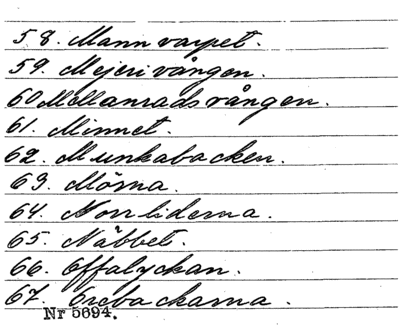 58. Mannvarpet.
59. Mejerivången.
60 Mellanradsvången.
61. Minnet.
62. Munkabacken.
63. Mörna.
64. Norrliderna.
65. Näbbet.
66. Offalyckan.
67. Orebackarna.
Nr 5694.